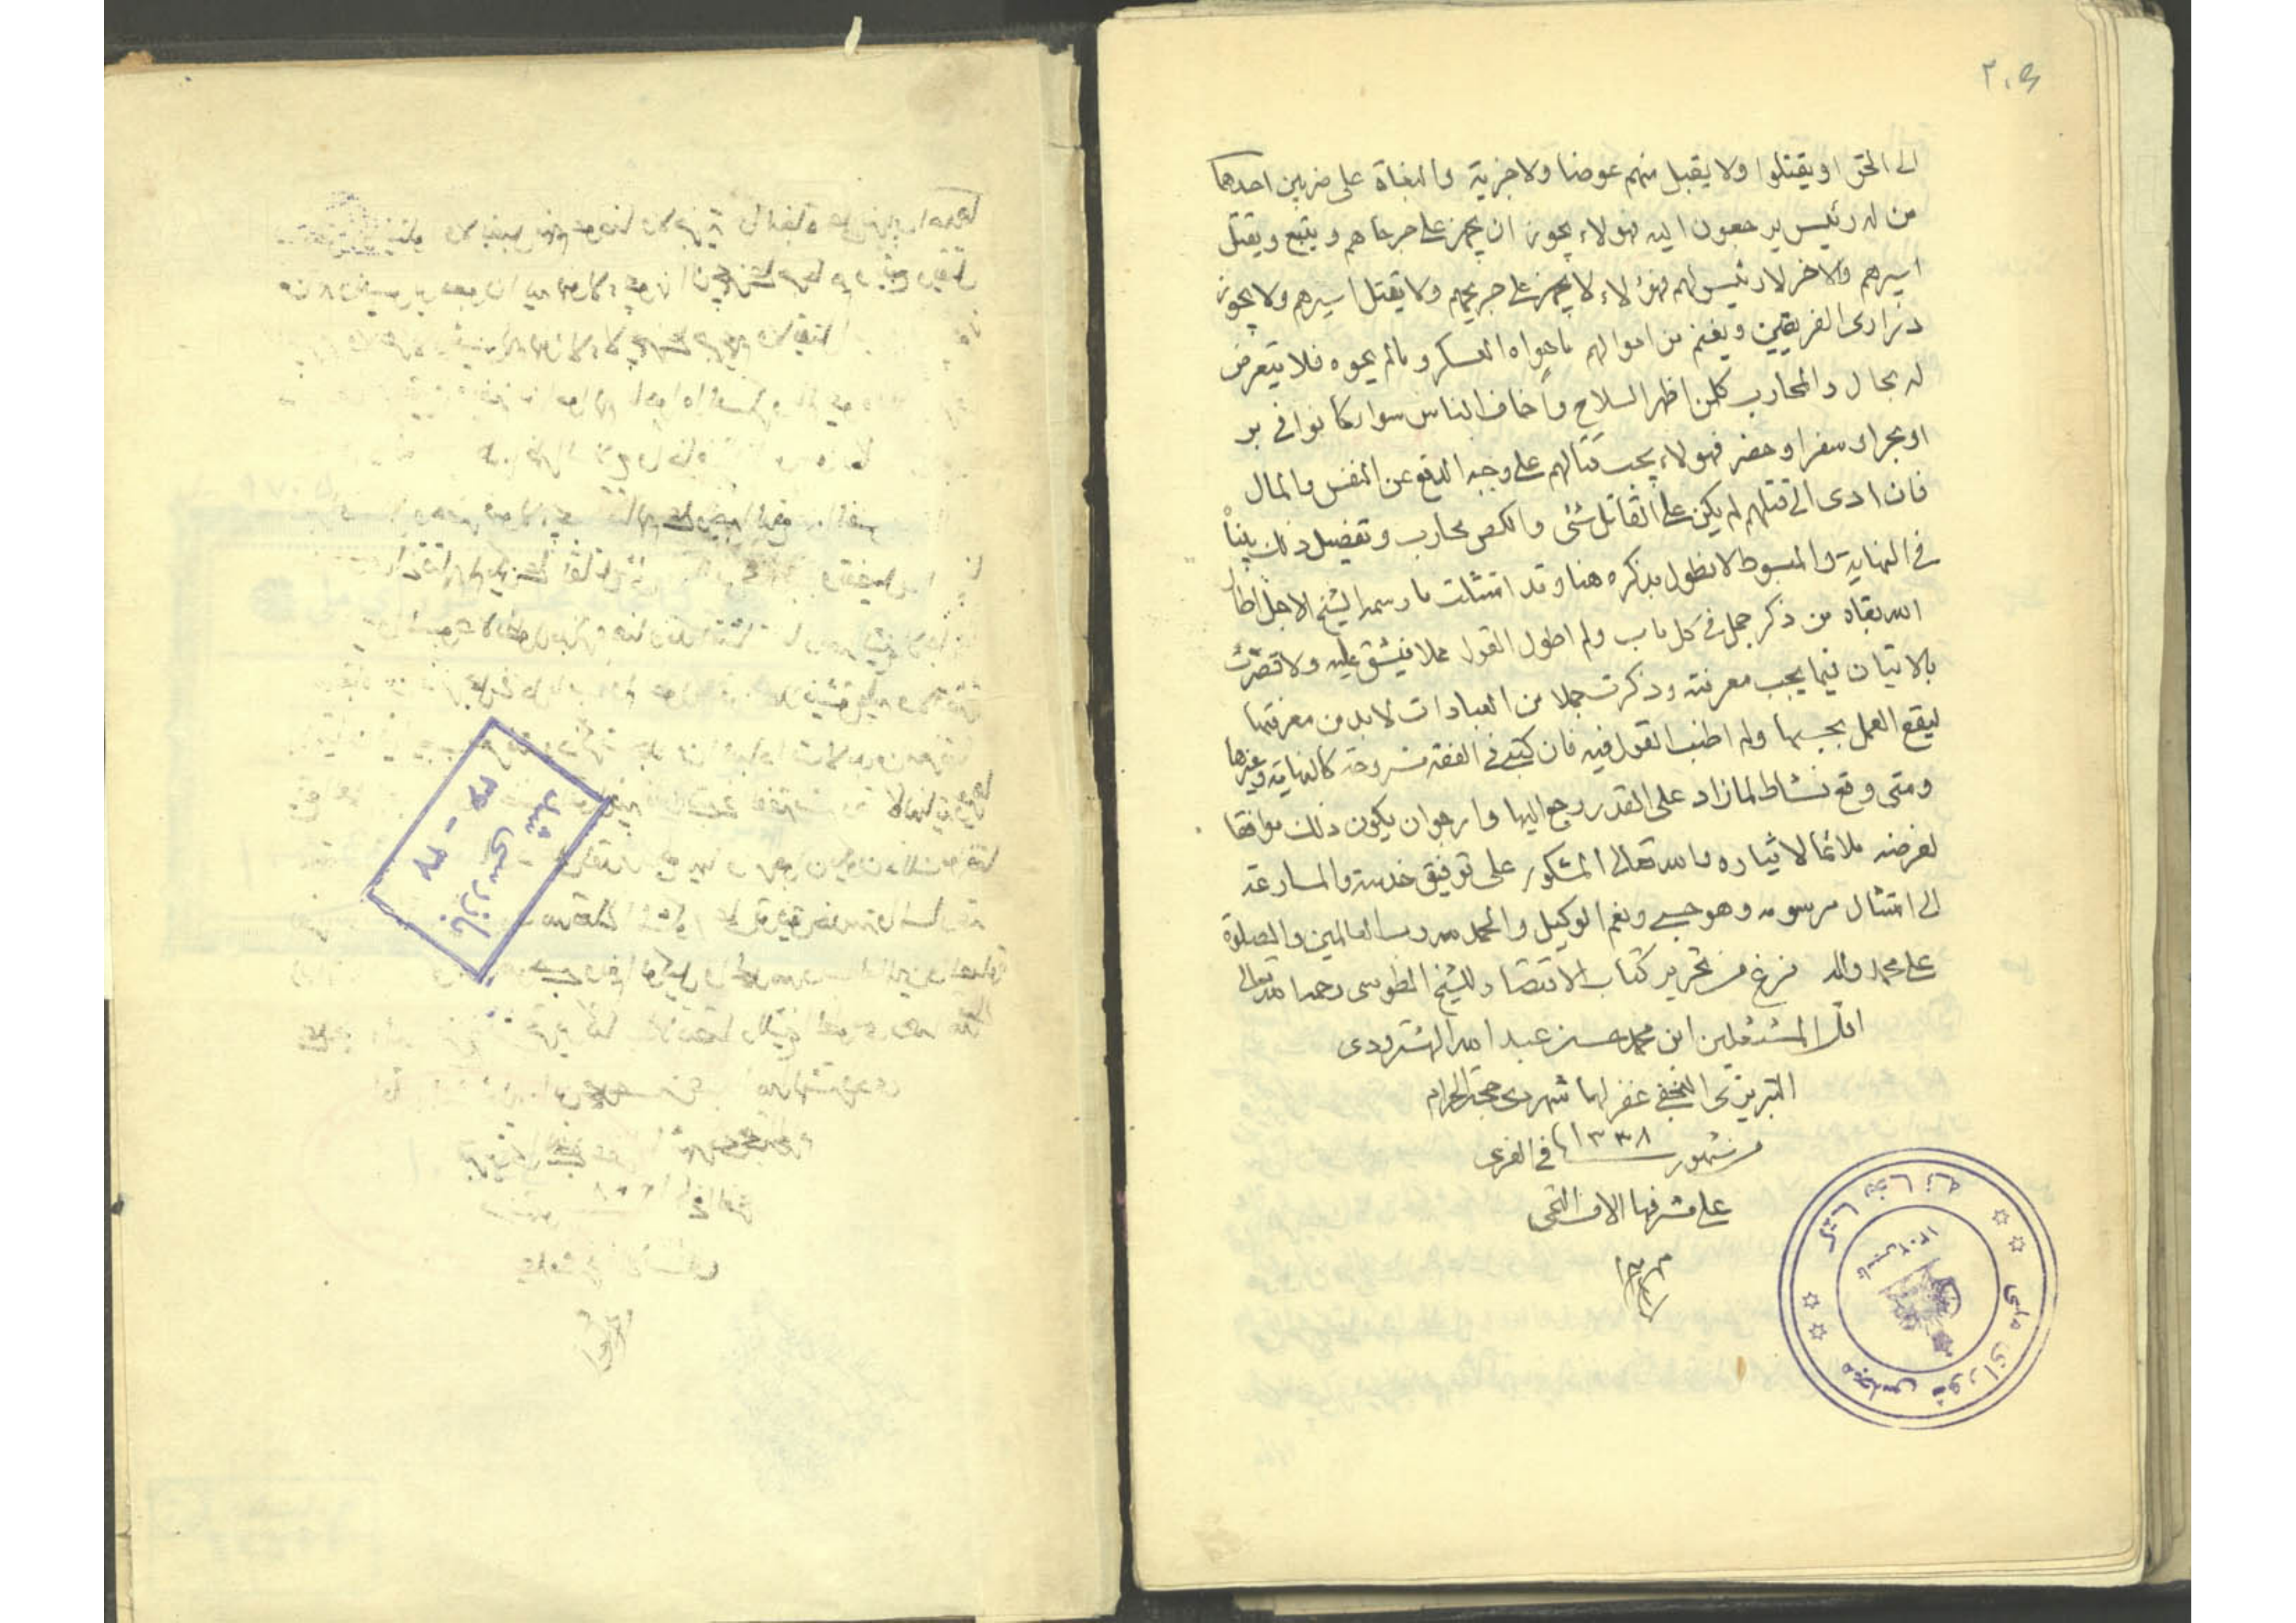 ٢٠٥
الى الحق او يقتلوا ولا يقبل منهم عوضا ولا جزية والبغاة على ضربين احدهما
من له رئيس يرجعون اليه فهولاء يجوز ان يجهز على جرحاهم ويتبع ويقتل
اسيرهم والاخر لا رئيس لهم فهؤلاء لا يجهز على جريحهم ولا يقتل اسيرهم ولا يجوز
ذرارى الفريقين ويغنم من اموالهم ما حواه العسكر وما لم يحوه فلا يتعرض
له بحال والمحارب كل من اظهر السلاح واخاف الناس سواء كانوا فى بر
او بحر او سفر او حضر فهولاء يجب قتالهم على وجه الدفع عن النفس والمال
فان ادى الى قتلهم لم يكن على القاتل شئى واللص محارب وتفصيل ذلك بيناه
فى النهاية والمبسوط لا نطول بذكره هنا وقد امتثلت ما رسمه الشيخ الاجل اطال
الله بقاه من ذكر جمل فى كل باب ولم اطول القول مملا فيشق عليه ولا قصرت
بالاتيان فيما يجب معرفته وذكرت جملا من العبادات لا بد من معرفتها
ليقع العمل بحسبها ولم اطنب القول فيه فان كتبى فى الفقه مشروحة كالنهاية وغيرها
ومتى وقع نشاط لما زاد على القدر رجع اليها وارجو ان يكون ذلك موافقا
لغرضه ملائما لايثاره والله تعالى المشكور على توفيق خدمته والمسارعة
الى امتثال مرسومه وهو حسبى ونعم الوكيل والحمد لله رب العالمين والصلوة
على محمد واله فرغ من تحرير كتاب الاقتصاد للشيخ الطوسى رحمه الله تعالى
اقل المشتغلين ابن محمد حسن عبد الله الهشترودى
التبريزى النجفى غفر لهما شهر ذى حجة الحرام
من شهور ١٣٣٨ فى الغرى
على مشرفها الاف التحى
كتابخانه مجلس شورای ملی
تاسیس ١٣٠٢
بازرسی شد
٣٧ - ٣٦